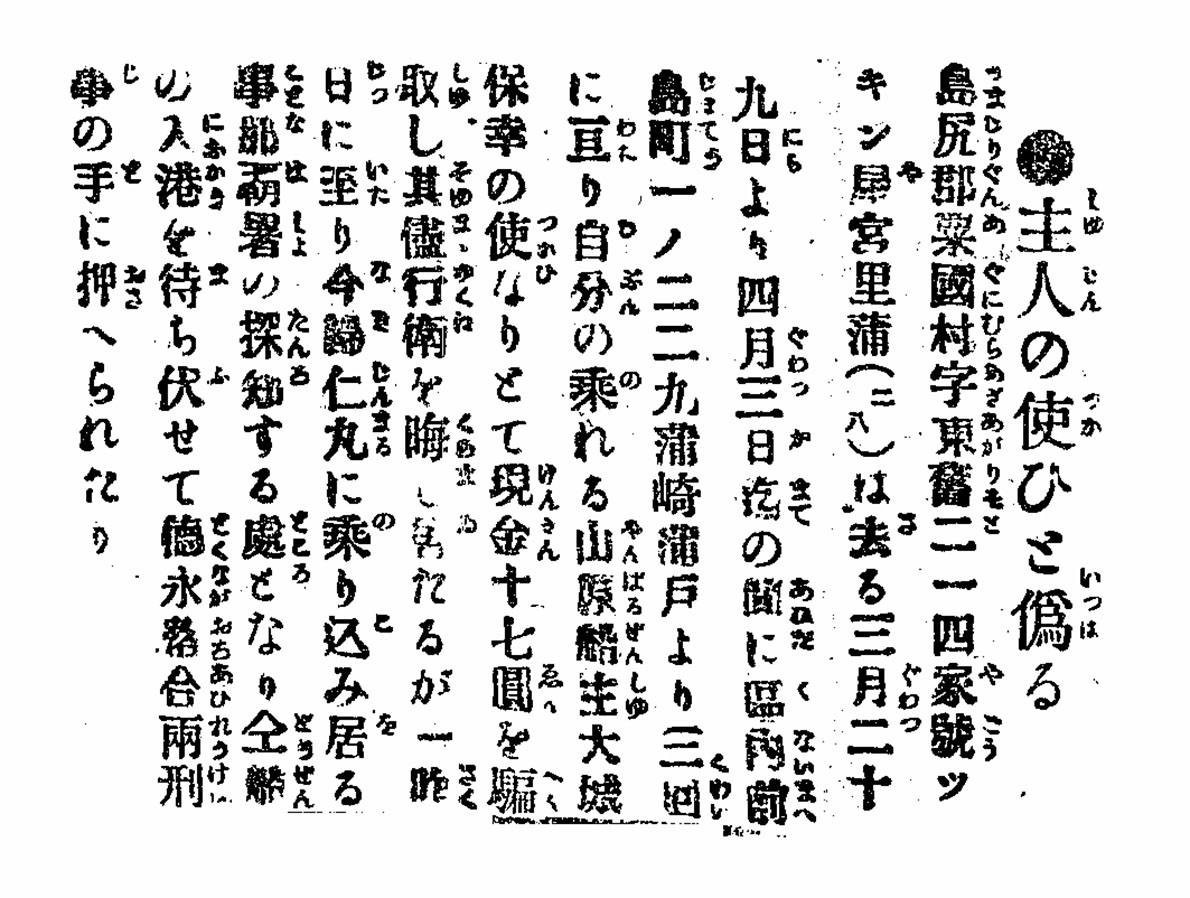 ●主人の使ひと偽る
島尻郡粟國村字東舊二一四家號ツ
キン屋宮里蒲(二八)は去る三月二十
九日より四月三日迄の間に區内前
島町一ノ二二九蒲崎蒲戸より三回
に亘り自分の乘れる山原船主大城
保幸の使なりとて現金十七圓を騙
取し其儘行衛を晦し居たるが一昨
日に至り今歸仁丸に乘り込み居る
事那覇署の探知する處となり仝船
の入港を待ち伏せて德永落合兩刑
事の手に押へられたり